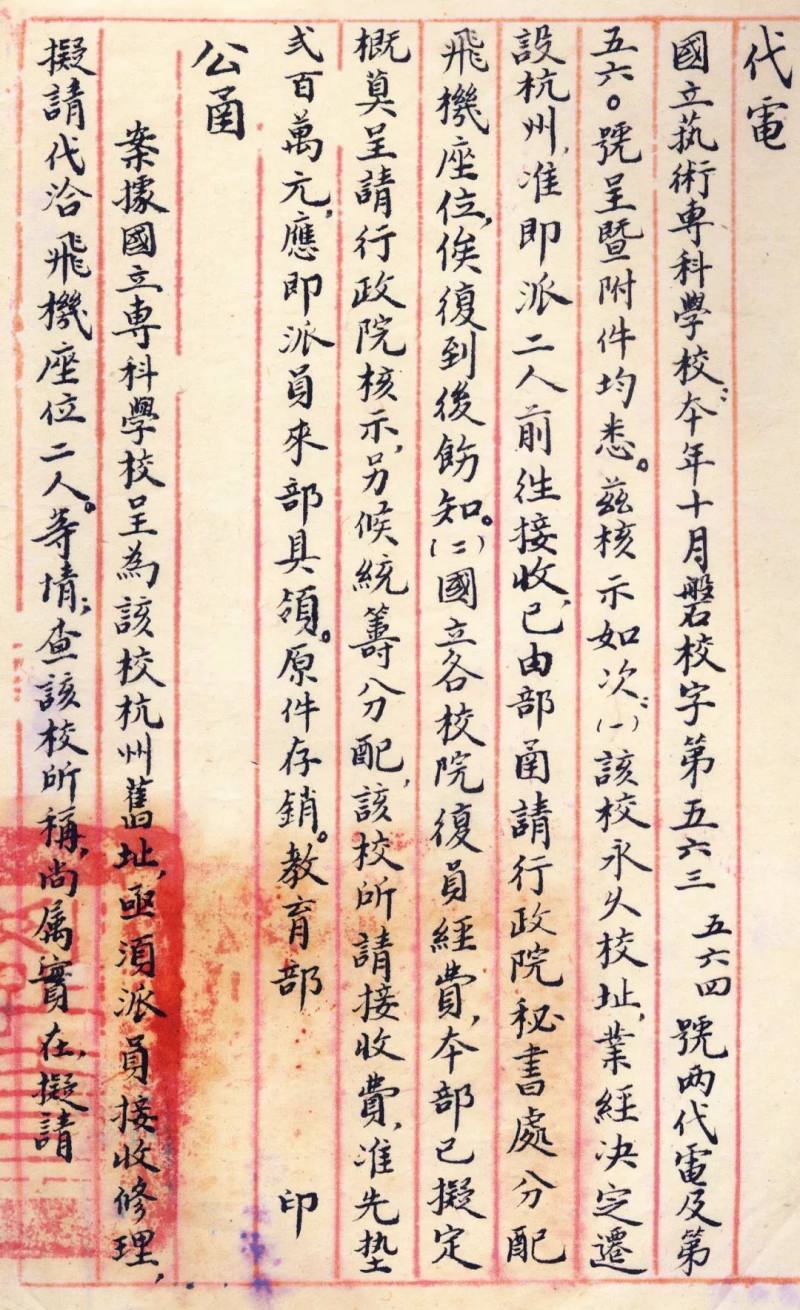 代電
國立藝術專科學校：本年十月磐校字第五六三 五六四 號两代電及第
五六〇號呈暨附件均悉。兹核示如次：(一)該校永久校址，業經決定遷
設杭州，准即派二人前往接收，已由部函請行政院秘書處分配
飛機座位，俟復到後飭知。(二)國立各校院復員經費，本部已擬定
概算呈請行政院核示，另候統籌分配，該校所請接收費，准先墊
弍百萬元，應即派員來部具領。原件存銷。教育部 印
公函
案據國立專科學校呈為該校杭州舊址，亟須派員接收修理，
擬請代洽飛機座位二人。等情；查該校所稱，尚属實在，擬請